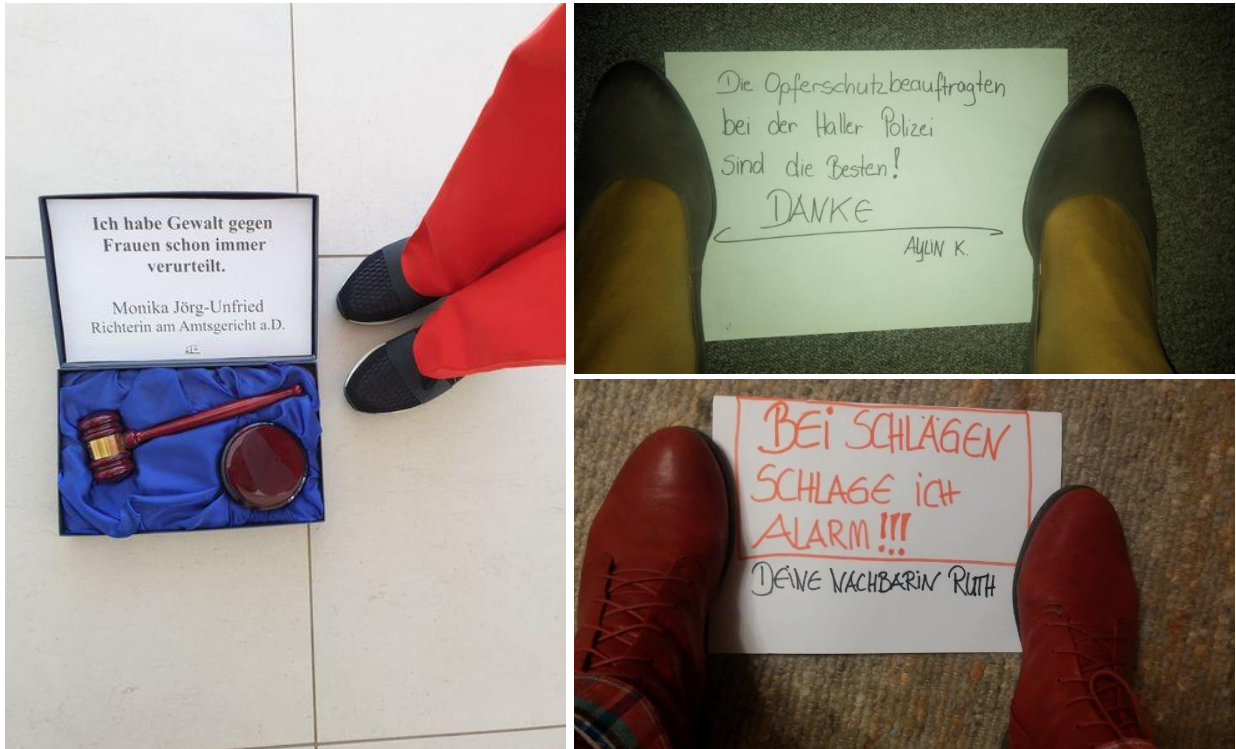 Ich habe Gewalt gegen
Frauen schon immer
verurteilt.
Monika Jörg-Unfried
Richterin am Amtsgericht a.D.
Die Opferschutzbeauftragten
bei der Haller Polizei
sind die Besten!
DANKE
AYLIN K.
BEi SCHLÄGEN
SCHLAGE iCH
ALARM!!!
DEINE NACHBARIN RUTH